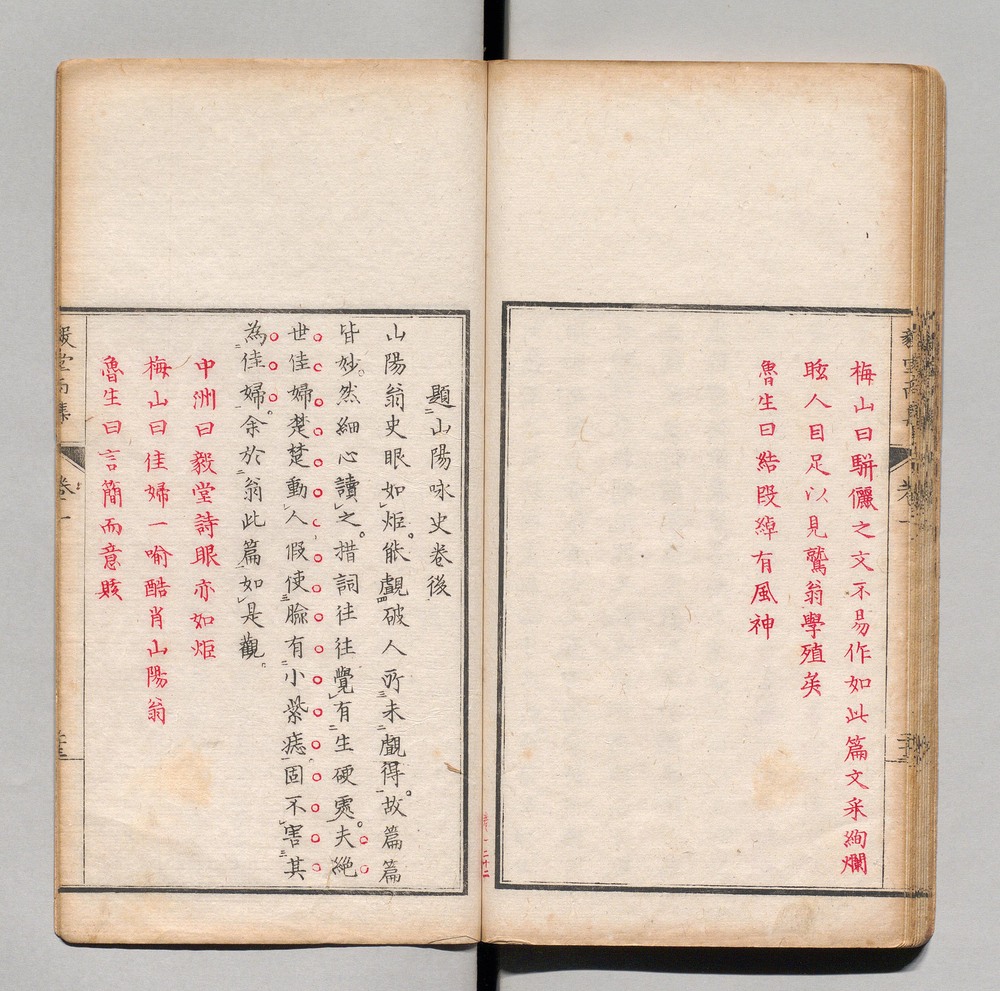 梅山曰駢儷之文不易作如此篇文采絢爛
眩人目足以見鷲翁學殖矣
魯生曰結段綽有風神
題山陽咏史卷後
山陽翁史眼如炬。能覰破人所未覰得。故篇篇
皆妙。然細心讀之。措詞往往覺有生硬處。夫絶
世佳婦楚楚動人假使臉有小紫痣固不害其
為佳婦。余於翁此篇如是觀。
中洲曰毅堂詩眼亦如炬
梅山曰佳婦一喻酷肖山陽翁
魯生曰言簡而意賅
卷一